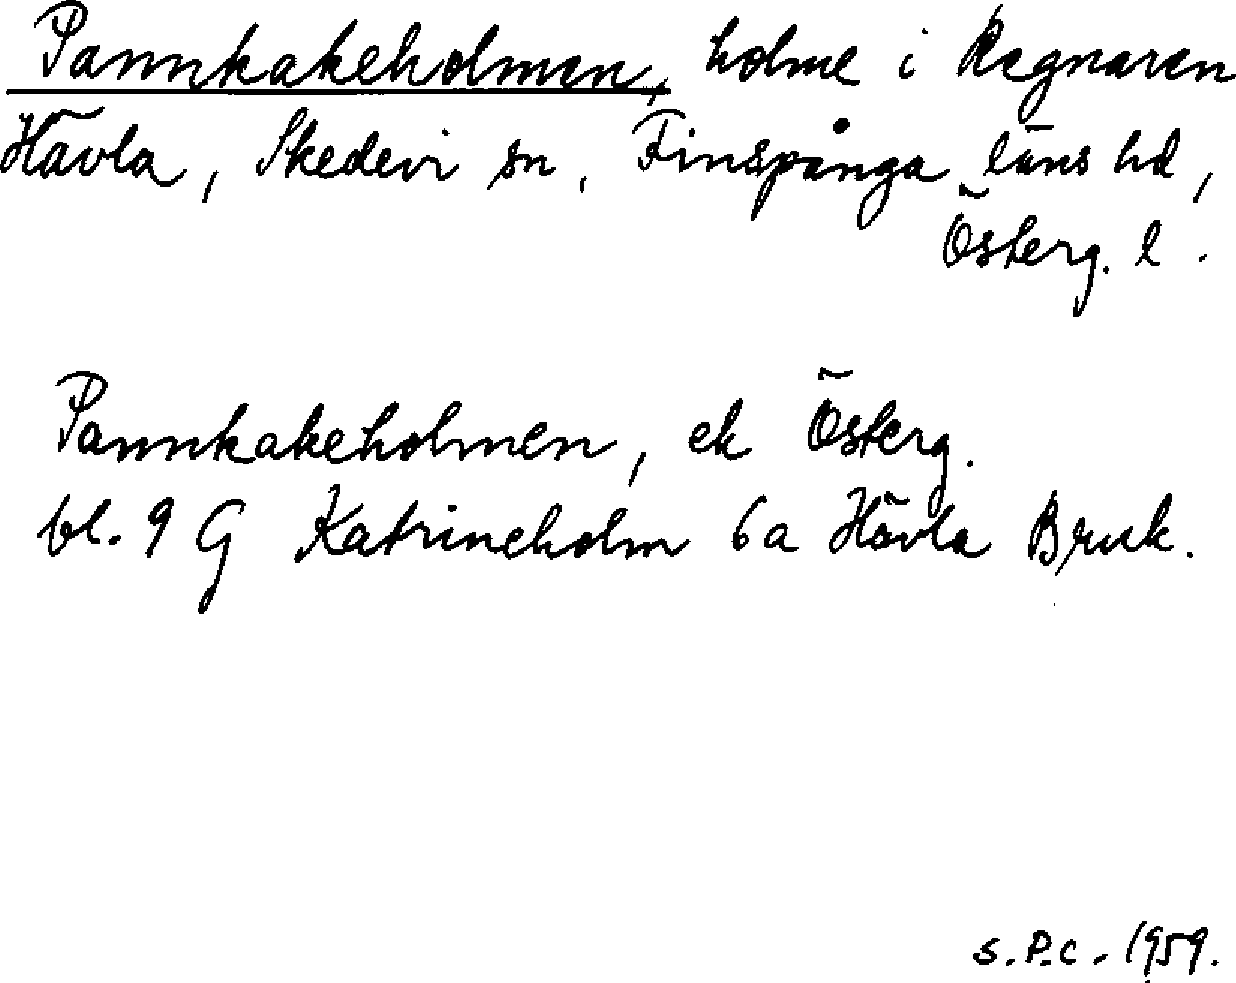 Pannkakeholmen, holme i Regnaren
Hävla, Skedevi sn, Finspånga läns hd,
Österg. l.
Pannkakeholmen, ek Österg.
bl. 9 G Katrineholm 6a Hävla Bruk.
S.P.C. 1959.